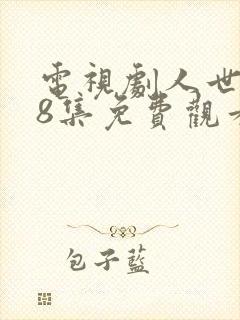 電視劇人世
8集免費觀看
包子藍